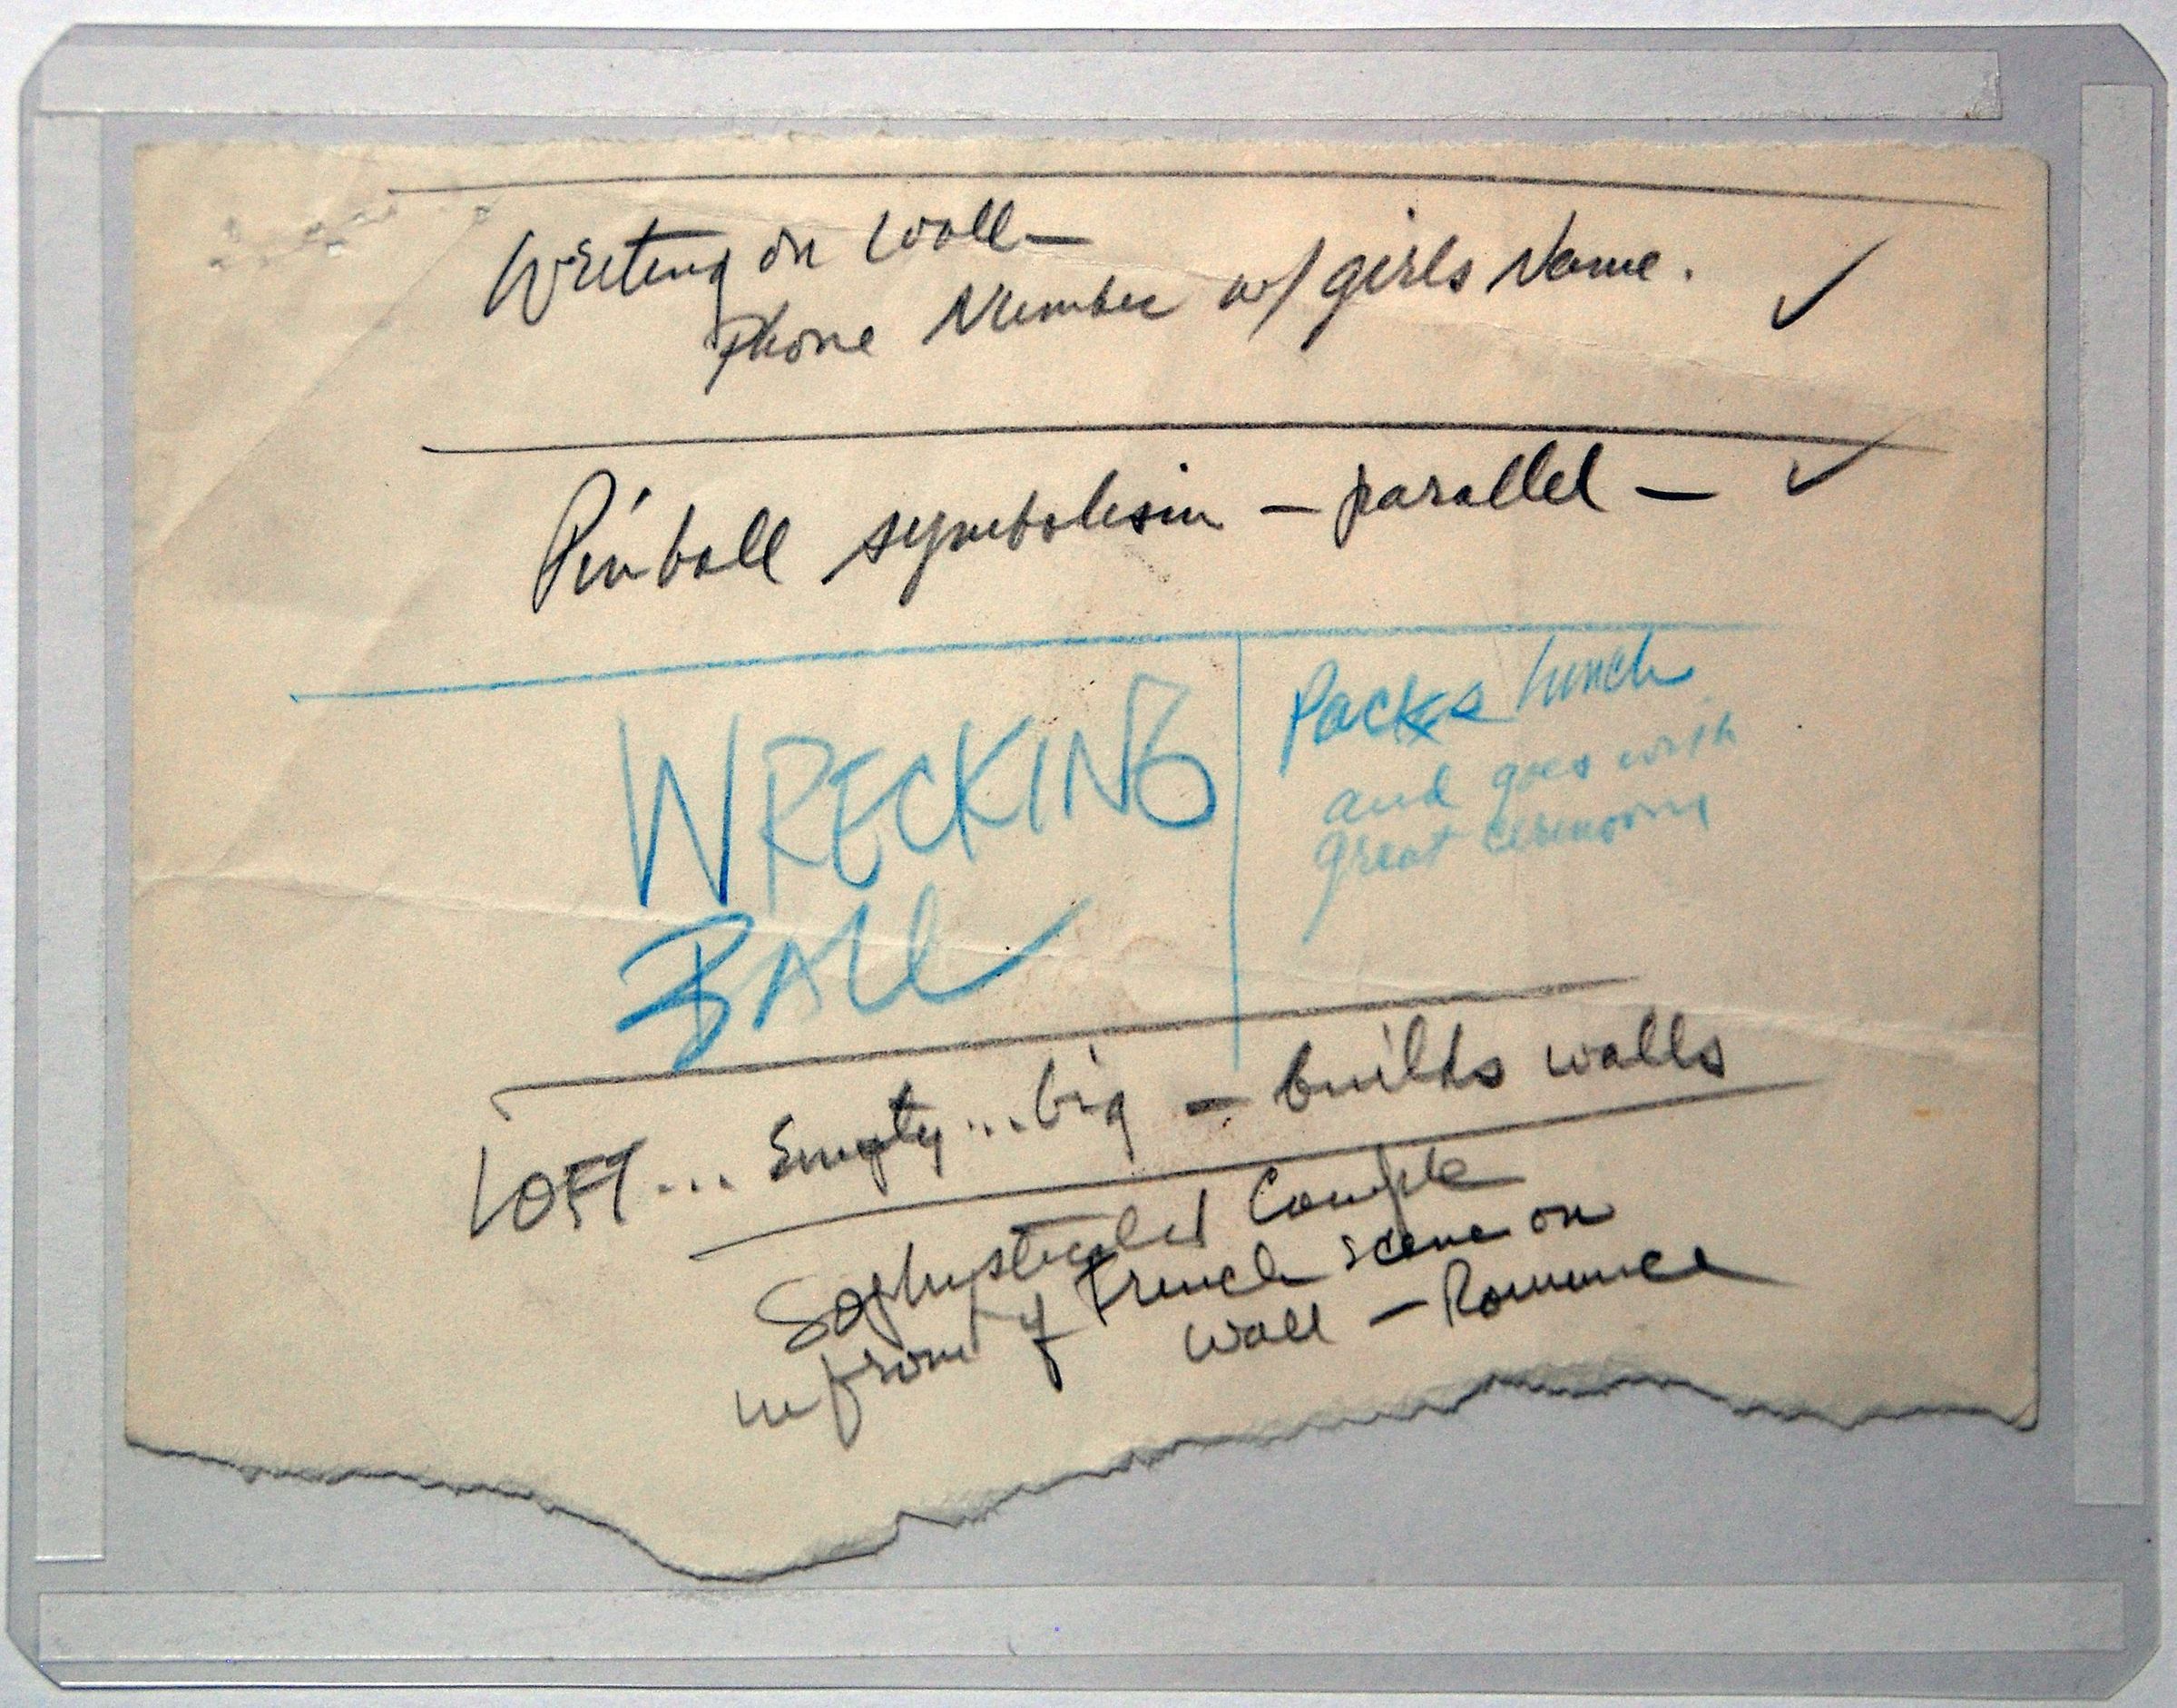 Writing on Wall —
Phone Number w/ girls Name. ✓
Pinball symbolism — parallel — ✓
WRECKING
BALL
Packs lunch
and goes with
great ceremony
LOFT... Empty...big — builds walls
Sophisticated Couple
in front of French scene on
Wall — Romance